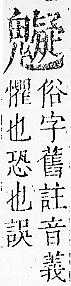 俗字舊註音義
懼也恐也誤